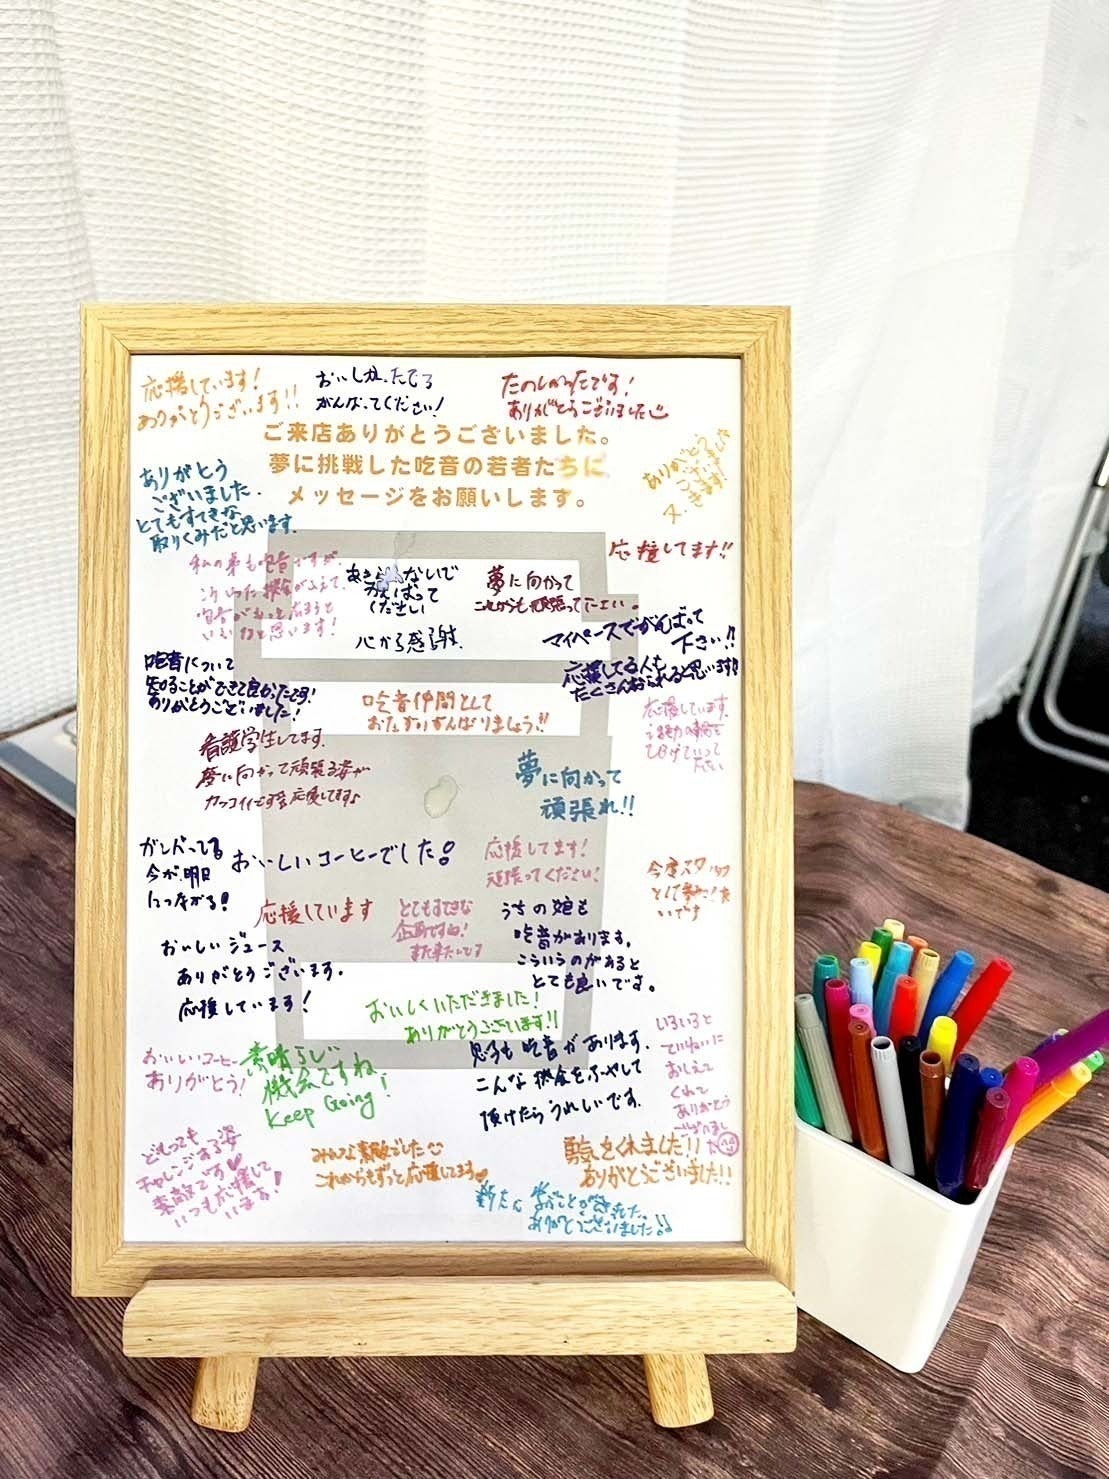 応援しています!
ありがとうございます!!
おいしかったです
がんばってください!
たのしかったです!
ありがとうございました
ご来店ありがとうございました。
夢に挑戦した吃音の若者たちに
メッセージをお願いします。
ありがとう
ございました
又
きます!
ありがとう
ございました。
とてもすてきな
取りくみだと思います。
応援してます!!
私の弟も吃音ですが、
こういった機会がふえて、
吃音がもっと広まると
いいなと思います!
あきらめないで
がんばって
ください
夢に向かって
これからも頑張って下さい。
心から感謝
マイペースでがんばって
下さい!!
吃音について
知ることができて良かったです!
ありがとうございました!
応援してる人も
たくさんおられると思います!!
吃音仲間として
おたがいがんばりましょう!!
応援しています。
の輪を
ひろげていって
ください
看護学生してます。
夢に向かって頑張る姿が
カッコイイです 応援してます♪
夢に向かって
頑張れ!!
ガンバってる
今が、明日
につながる!
おいしいコーヒーでした!
応援してます!
頑張ってください!
今度スタッフ
として
いです
応援しています
とてもすてきな
企画ですね!
また来たいです
うちの娘も
吃音があります。
こういうのがあると
とても良いです。
おいしいジュース
ありがとうございます。
応援しています!
おいしくいただきました!
ありがとうございます!!
おいしいコーヒー
ありがとう!
素晴らしい
機会ですね!
Keep Going
息子も吃音があります。
こんな機会をふやして
頂けたらうれしいです。
いろいろと
ていねいに
おしえて
くれて
ありがとう
ございました
どもっても
チャレンジする姿
素敵です♥
いつも応援して
います!
みんな素敵でした
これからもずっと応援してます♥
勇気をくれました!!
ありがとうございました!!
ことができました。
ありがとうございました!!